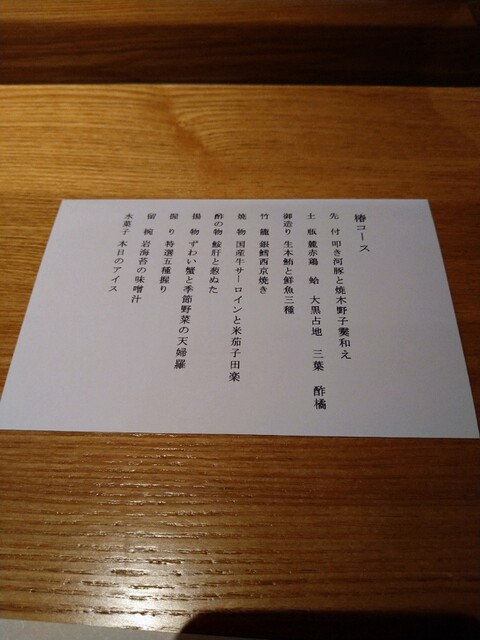 椿コース
先　付 叩き河豚と焼木野子霙和え
土　瓶 麓赤鶏　蛤　大黒占地　三葉　酢橘
御造り 生本鮪と鮮魚三種
竹　籠 銀鱈西京焼き
焼　物 国産牛サーロインと米茄子田楽
酢の物 鮟肝と葱ぬた
揚　物 ずわい蟹と季節野菜の天婦羅
握　り 特選五種握り
留　椀 岩海苔の味噌汁
水菓子 本日のアイス